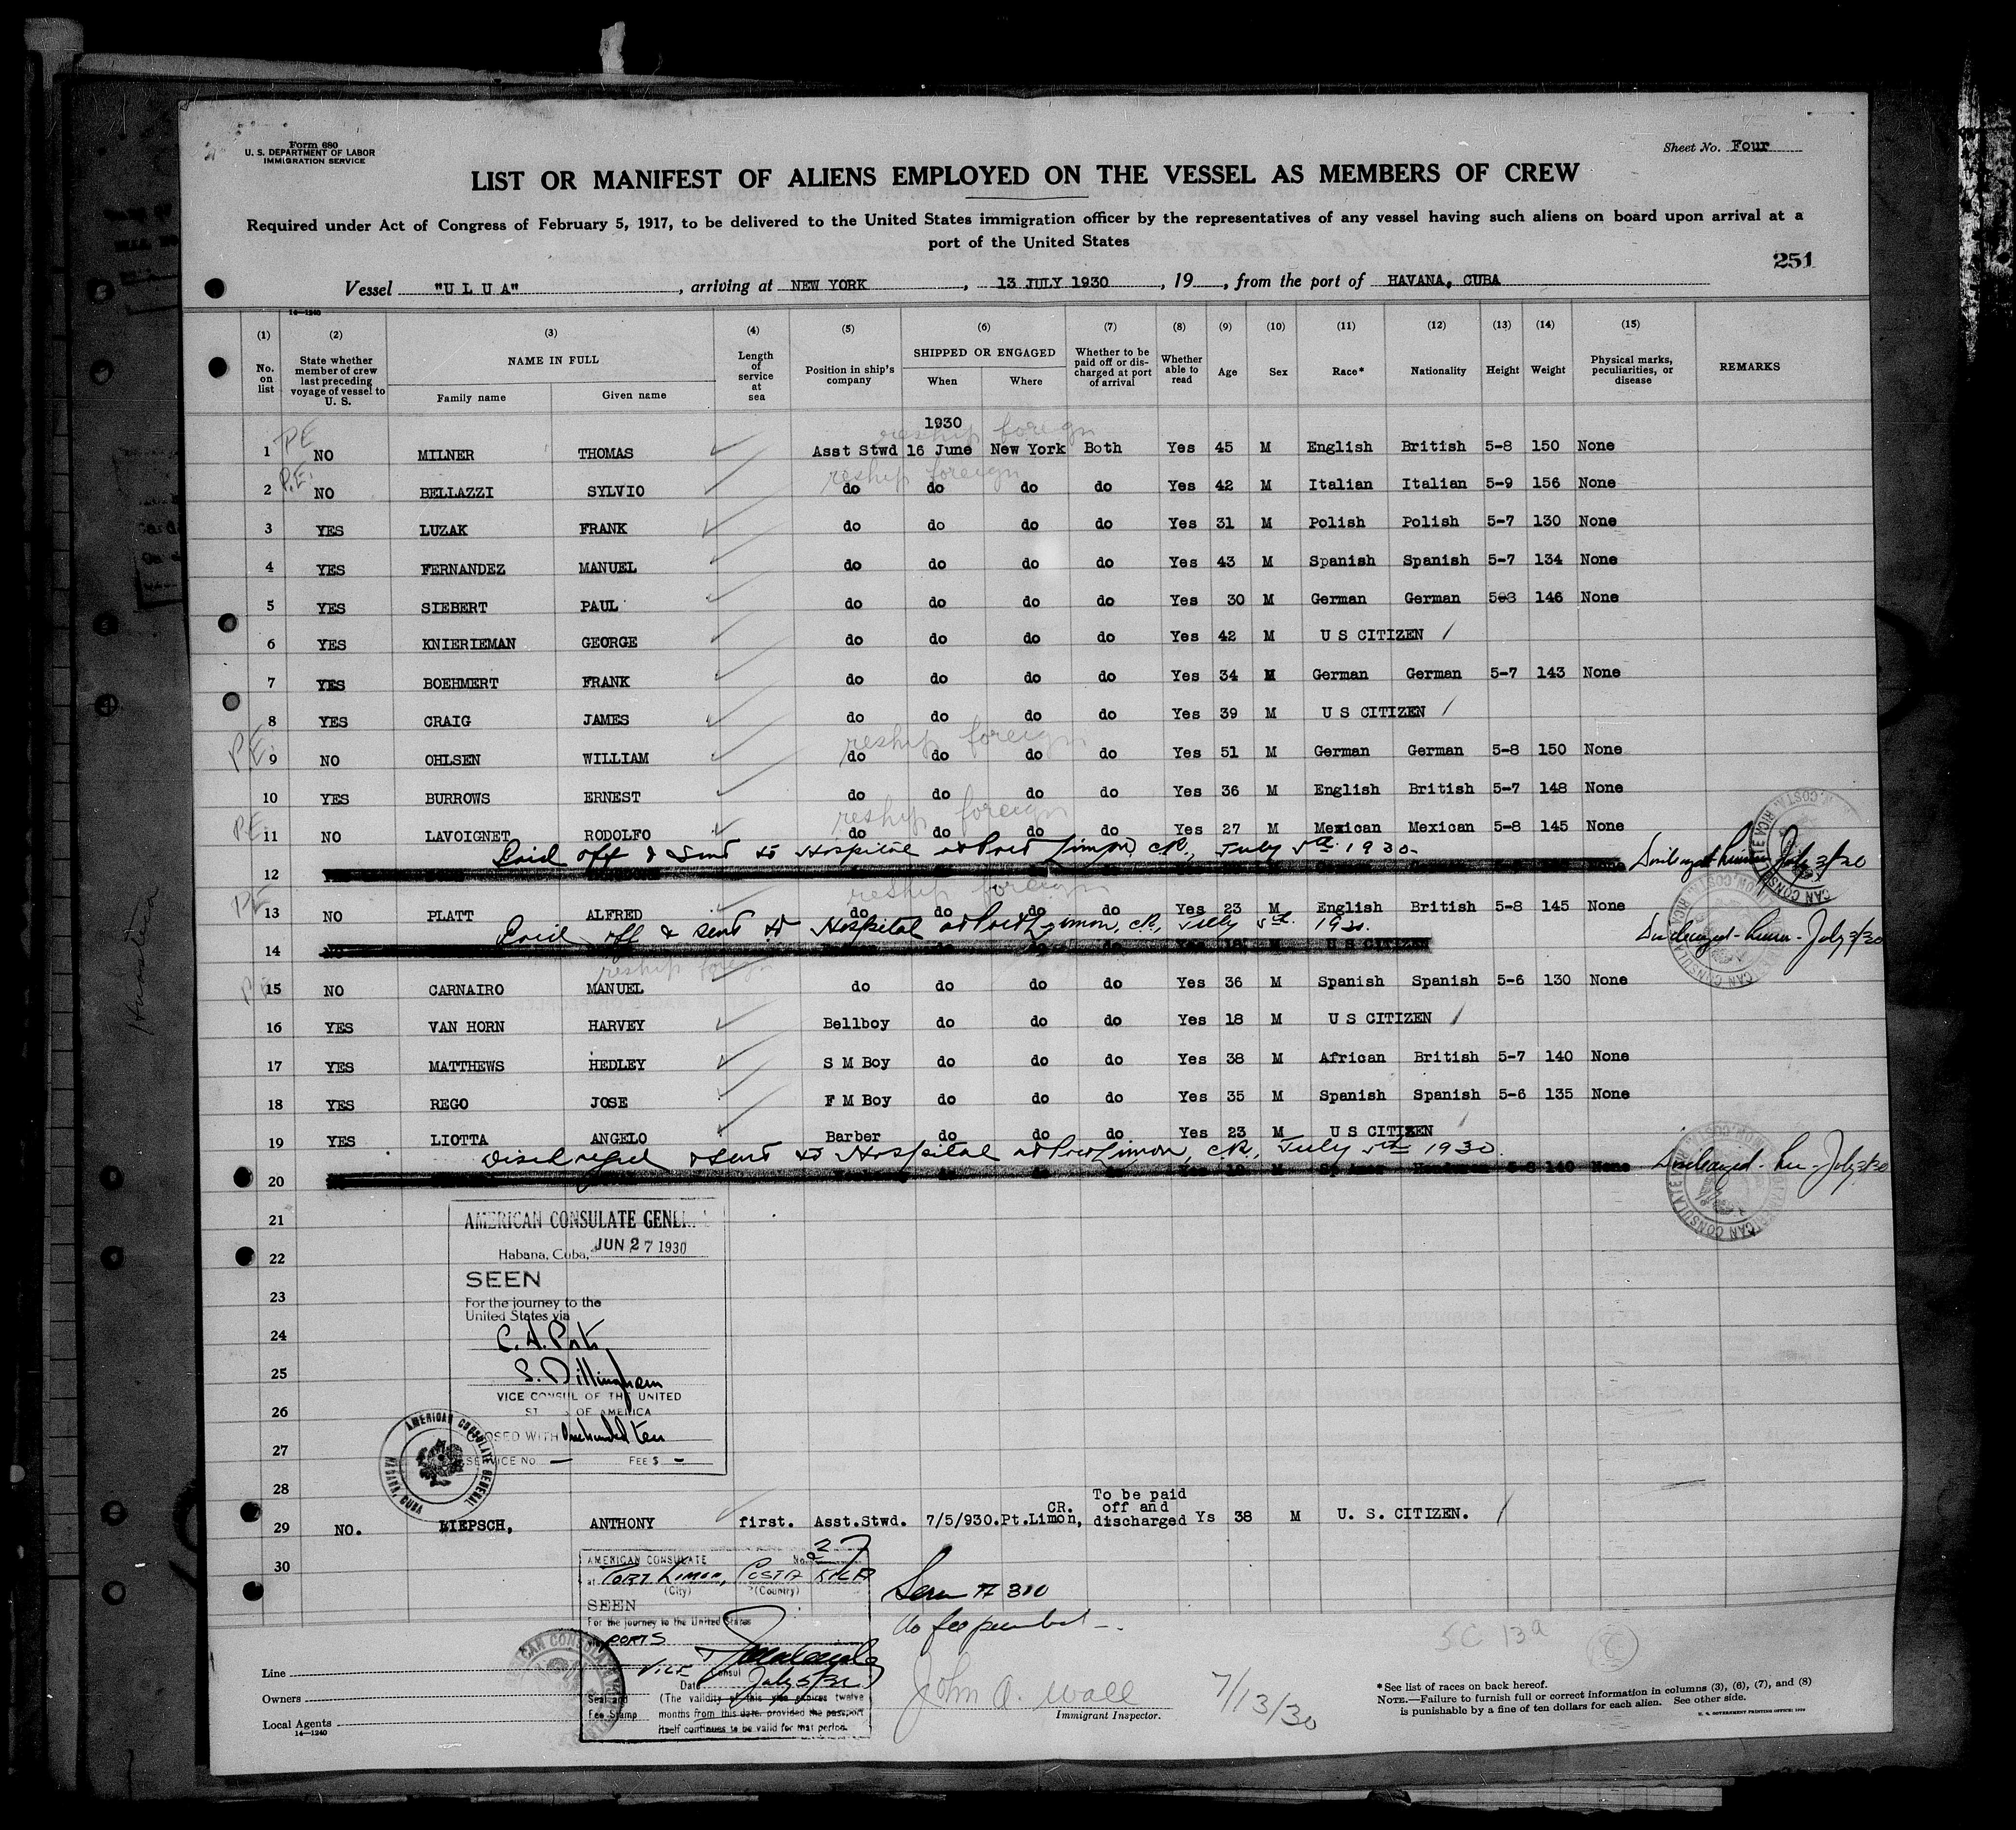 Form 680
U. S. DEPARTMENT OF LABOR
IMMIGRATION SERVICE
Sheet No. Four
LIST OR MANIFEST OF ALIENS EMPLOYED ON THE VESSEL AS MEMBERS OF CREW
Required under Act of Congress of February 5, 1917, to be delivered to the United States immigration officer by the representatives of any vessel having such aliens on board upon arrival at a
port of the United States
251
Vessel "U L U A", arriving at NEW YORK, 13 JULY 1930, 19, from the port of HAVANA, CUBA
14—1240
(1) (2) (3) (4) (5) (6) (7) (8) (9) (10) (11) (12) (13) (14) (15)
No. on list
State whether member of crew last preceding voyage of vessel to U. S.
NAME IN FULL
Family name
Given name
Length of service at sea
Position in ship's company
SHIPPED OR ENGAGED
When
Where
Whether to be paid off or discharged at port of arrival
Whether able to read
Age
Sex
Race*
Nationality
Height
Weight
Physical marks, peculiarities, or disease
REMARKS
1930
reship foreign
1 PE NO MILNER THOMAS Asst Stwd 16 June New York Both Yes 45 M English British 5-8 150 None
reship foreign
2 P.E. NO BELLAZZI SYLVIO do do do do Yes 42 M Italian Italian 5-9 156 None
3 YES LUZAK FRANK do do do do Yes 31 M Polish Polish 5-7 130 None
4 YES FERNANDEZ MANUEL do do do do Yes 43 M Spanish Spanish 5-7 134 None
5 YES SIEBERT PAUL do do do do Yes 30 M German German 5-8 146 None
6 YES KNIERIEMAN GEORGE do do do do Yes 42 M U S CITIZEN
7 YES BOEHMERT FRANK do do do do Yes 34 M German German 5-7 143 None
8 YES CRAIG JAMES do do do do Yes 39 M U S CITIZEN
reship foreign
P.E. 9 NO OHLSEN WILLIAM do do do do Yes 51 M German German 5-8 150 None
10 YES BURROWS ERNEST do do do do Yes 36 M English British 5-7 148 None
reship foreign
PE 11 NO LAVOIGNET RODOLFO do do do do Yes 27 M Mexican Mexican 5-8 145 None
Paid off & Sent to Hospital at Port Limon, CR., July 5th 1930.
12 July 3/30
reship foreign
PE 13 NO PLATT ALFRED do do do do Yes 23 M English British 5-8 145 None
Paid off & sent to Hospital at Port Limon, CR., July 5th. 1930.
14 NO U S CITIZEN Discharged July 3/30
reship foreign
PE 15 NO CARNAIRO MANUEL do do do do Yes 36 M Spanish Spanish 5-6 130 None
16 YES VAN HORN HARVEY Bellboy do do do Yes 18 M U S CITIZEN
17 YES MATTHEWS HEDLEY S M Boy do do do Yes 38 M African British 5-7 140 None
18 YES REGO JOSE F M Boy do do do Yes 35 M Spanish Spanish 5-6 135 None
19 YES LIOTTA ANGELO Barber do do do Yes 23 M U S CITIZEN
Discharged & Sent to Hospital at Port Limon, CR., July 5th 1930.
20 140 None Discharged July 3/30
21
22
23
24
25
26
27
28
AMERICAN CONSULATE GENERAL
Habana, Cuba, JUN 27 1930
SEEN
For the journey to the
United States via
C. A. Ports
S. Dillingham
VICE CONSUL OF THE UNITED
STATES OF AMERICA
CLOSED WITH One hundred ten
SERVICE NO — FEE $ —
AMERICAN CONSULATE GENERAL
HABANA, CUBA
29 NO. LIEPSCH, ANTHONY first. Asst.Stwd. 7/5/930. Pt.Limon, CR. To be paid off and discharged Ys 38 M U. S. CITIZEN.
30
AMERICAN CONSULATE No. 27
at PORT LIMON, COSTA RICA
(City) (Country)
SEEN
For the journey to the United States
via PORTS
VICE Consul
Date July 5/30
(The validity of this visa expires twelve
months from this date, provided the passport
itself continues to be valid for that period.
Seal and
Fee Stamp
310
No fee
John A. Wall
Immigrant Inspector.
7/13/30
Line
Owners
Local Agents
14—1240
*See list of races on back hereof.
NOTE.—Failure to furnish full or correct information in columns (3), (6), (7), and (8)
is punishable by a fine of ten dollars for each alien. See other side.
U. S. GOVERNMENT PRINTING OFFICE